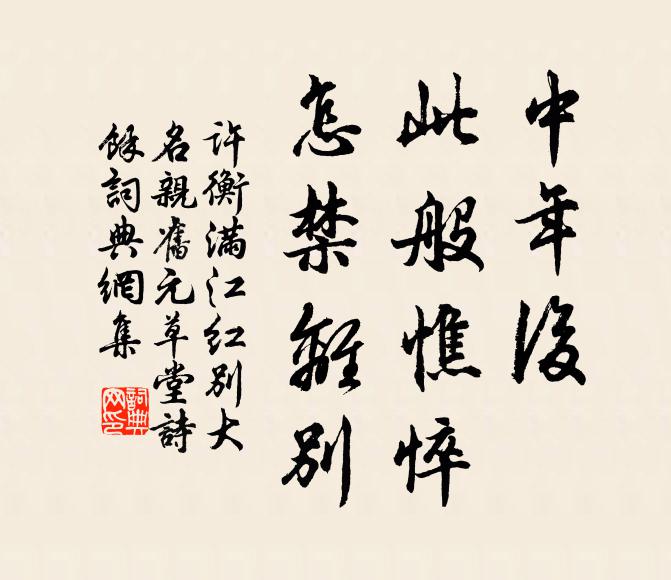 中年後
此般憔悴
怎禁離別
許衡滿江紅別大
名親舊元草堂詩
餘詞典網集
詞典
网印